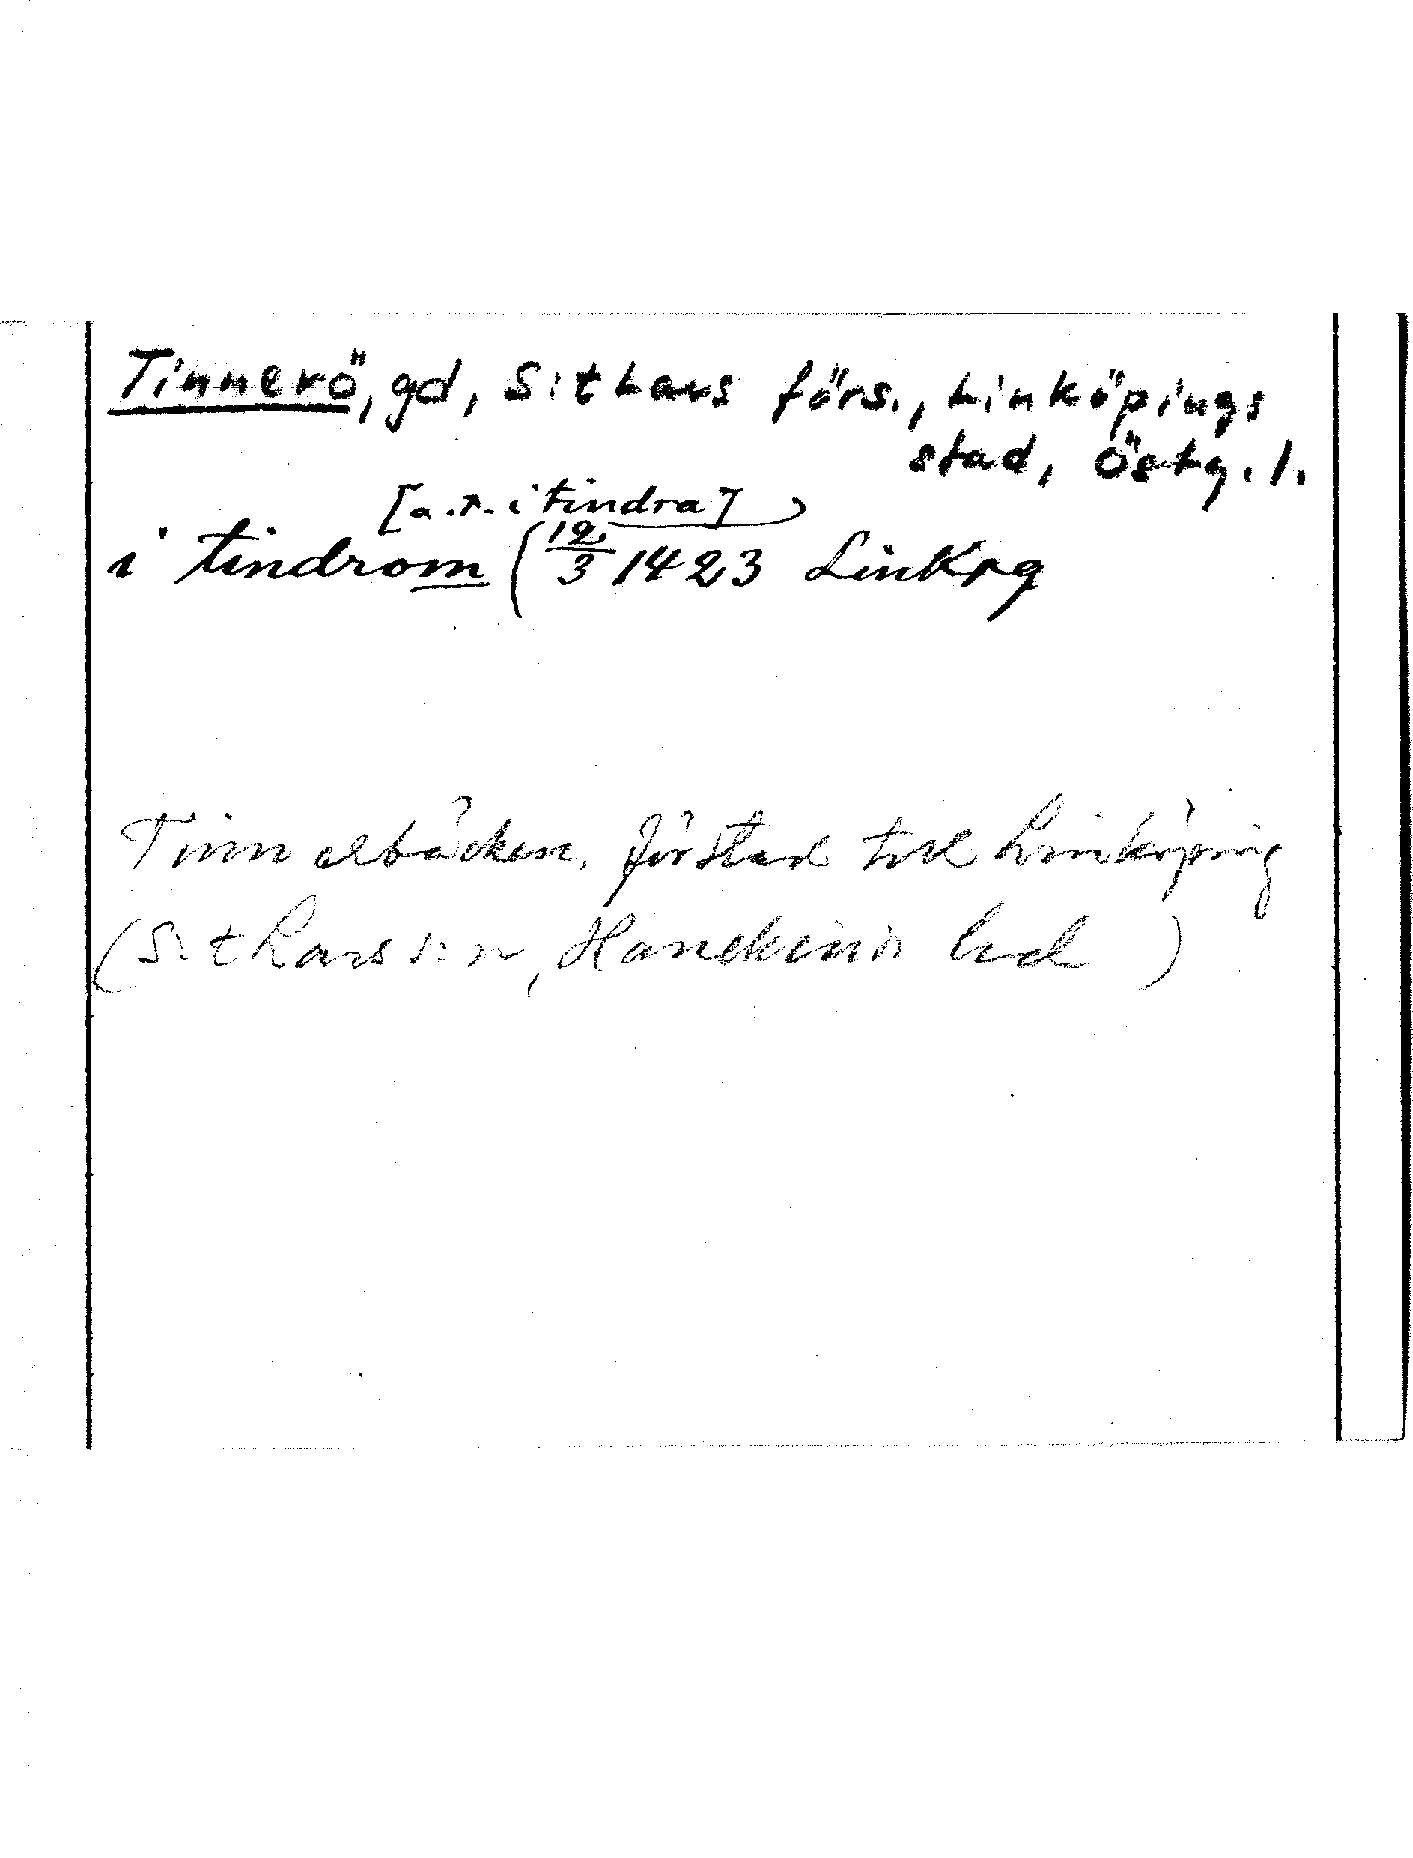 Tinnerö, gd, S:t Lars förs., Linköpings
stad, Östg. l.
[a.r. i tindra]
i tindrom (12/3 1423 Linkpg)
Tinnerbäcken, förstad till Linköping
(S:t Lars s:n, Hanekinds hd)